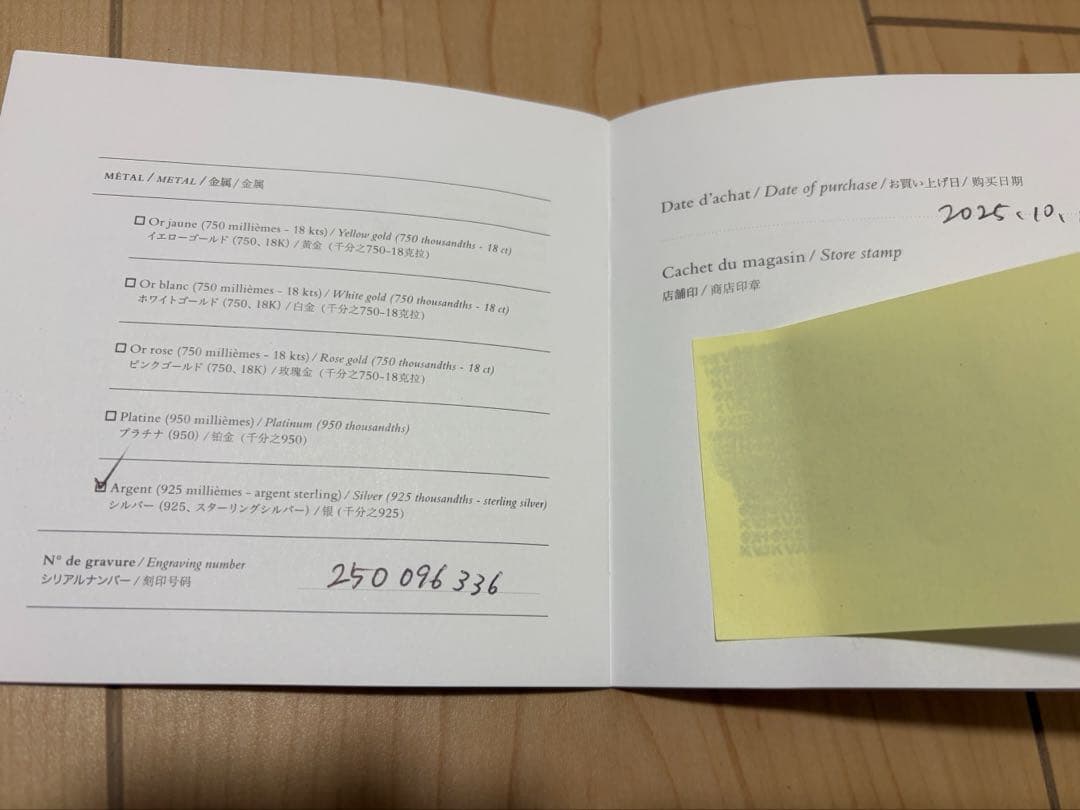 MÉTAL / METAL / 金属 / 金属
Or jaune (750 millièmes - 18 kts) / Yellow gold (750 thousandths - 18 ct)
イエローゴールド (750、18K) / 黄金（千分之750-18克拉）
Or blanc (750 millièmes - 18 kts) / White gold (750 thousandths - 18 ct)
ホワイトゴールド (750、18K) / 白金（千分之750-18克拉）
Or rose (750 millièmes - 18 kts) / Rose gold (750 thousandths - 18 ct)
ピンクゴールド (750、18K) / 玫瑰金（千分之750-18克拉）
Platine (950 millièmes) / Platinum (950 thousandths)
プラチナ (950) / 铂金（千分之950）
Argent (925 millièmes - argent sterling) / Silver (925 thousandths - sterling silver)
シルバー (925、スターリングシルバー) / 银 (千分之925)
N° de gravure / Engraving number
シリアルナンバー / 刻印号码
250 096 336
Date d'achat / Date of purchase / お買い上げ日 / 购买日期
2025、10、
Cachet du magasin / Store stamp
店舗印 / 商店印章